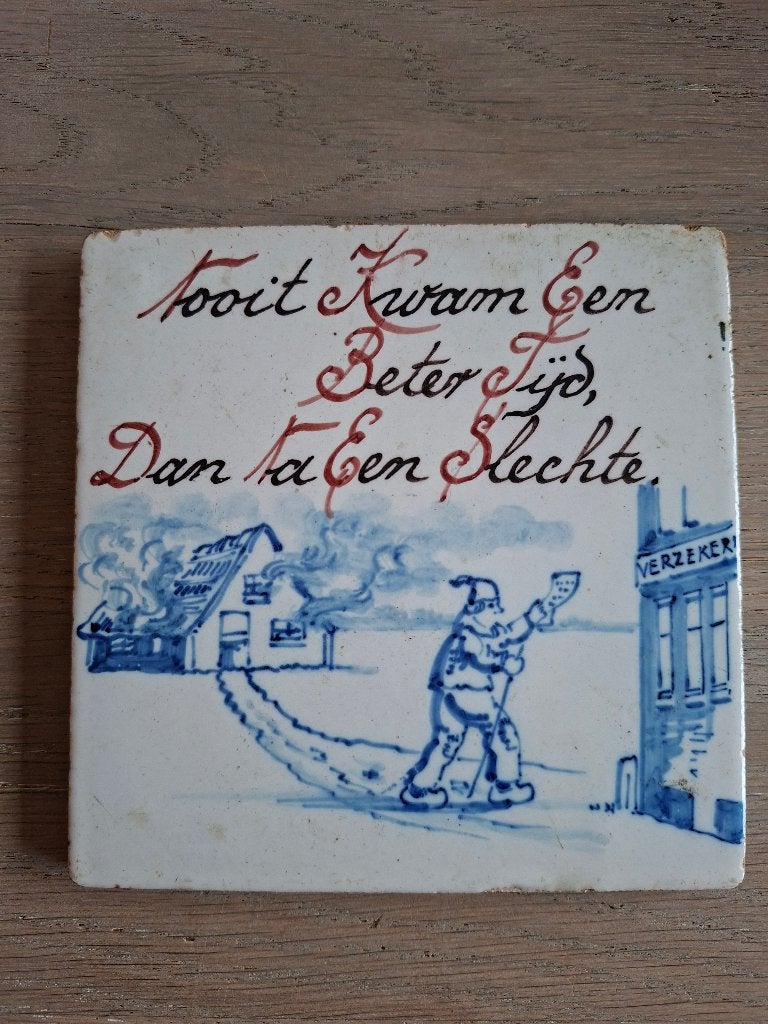 Nooit Kwam Een
Beter Tijd,
Dan Na Een Slechte.
VERZEKER